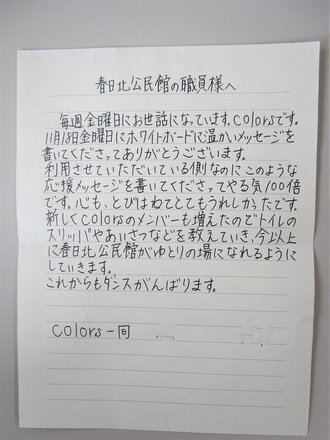 春日北公民館の職員様へ
毎週金曜日にお世話になっています、colorsです。
11月18日金曜日にホワイトボードに温かいメッセージを
書いてくださってありがとうございます。
利用させていただいている側なのにこのような
応援メッセージを書いてくださってやる気100倍
です。心も、とびはねてとてもうれしかったです。
新しくcolorsのメンバーも増えたのでトイレの
スリッパやあいさつなどを教えていき、今以上
に春日北公民館がゆとりの場になれるように
していきます。
これからもダンスがんばります。
colors一同